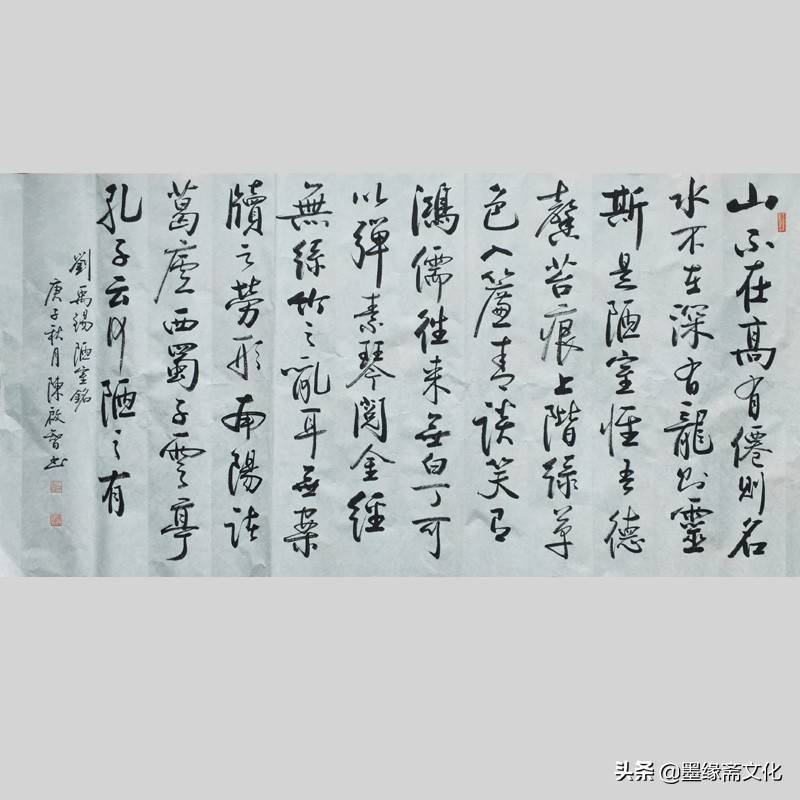 山不在高有僊則名
水不在深有龍則靈
斯是陋室惟吾德
馨苔痕上階綠草
色入簾青談笑有
鴻儒往來無白丁可
以彈素琴閱金經
無絲竹之亂耳無案
牘之勞形南陽諸
葛廬西蜀子雲亭
孔子云何陋之有
劉禹錫陋室銘
庚子秋月陳啟智書
头条 @墨缘斋文化